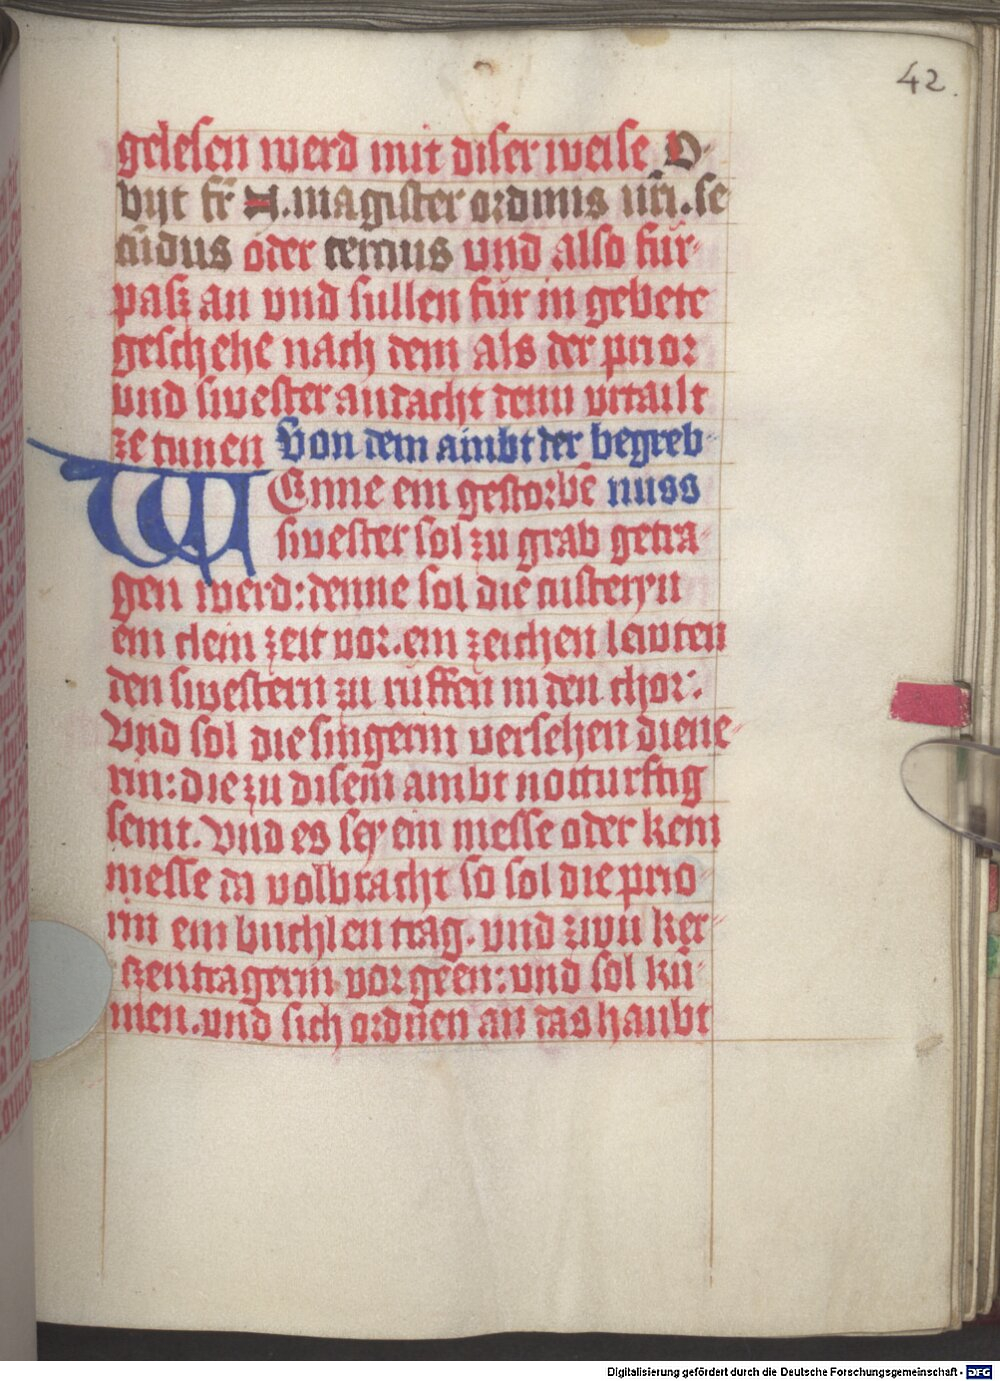 42.
gelesen werd mit diser weise O-
vijt fr̄ .N. magister ordinis nr̄i. se
cūdus oder tercius vnd also für-
pasz an vnd sullen für in gebete
geschehe nach dem als der prior
vnd swester andacht denn vrtailt
ze tunen Von dem ambt der begreb-
WEnne ein gestorbē nuss
swester sol zu grab getra-
gen werd: denne sol die custeryn
ein clein zeit vor. ein zeichen lewten
den swestern zu ruffen in den chor.
Vnd sol die singerin versehen diene-
rin: die zu disem ambt notturftig
seint. Vnd es sey ein messe oder kein
messe da volbracht so sol die prio-
rin ein buchlen trag. vnd zwu ker-
tzentragerin vor geen: vnd sol ku-
men. vnd sich ordnen an das haubt
Digitalisierung gefördert durch die Deutsche Forschungsgemeinschaft - DFG